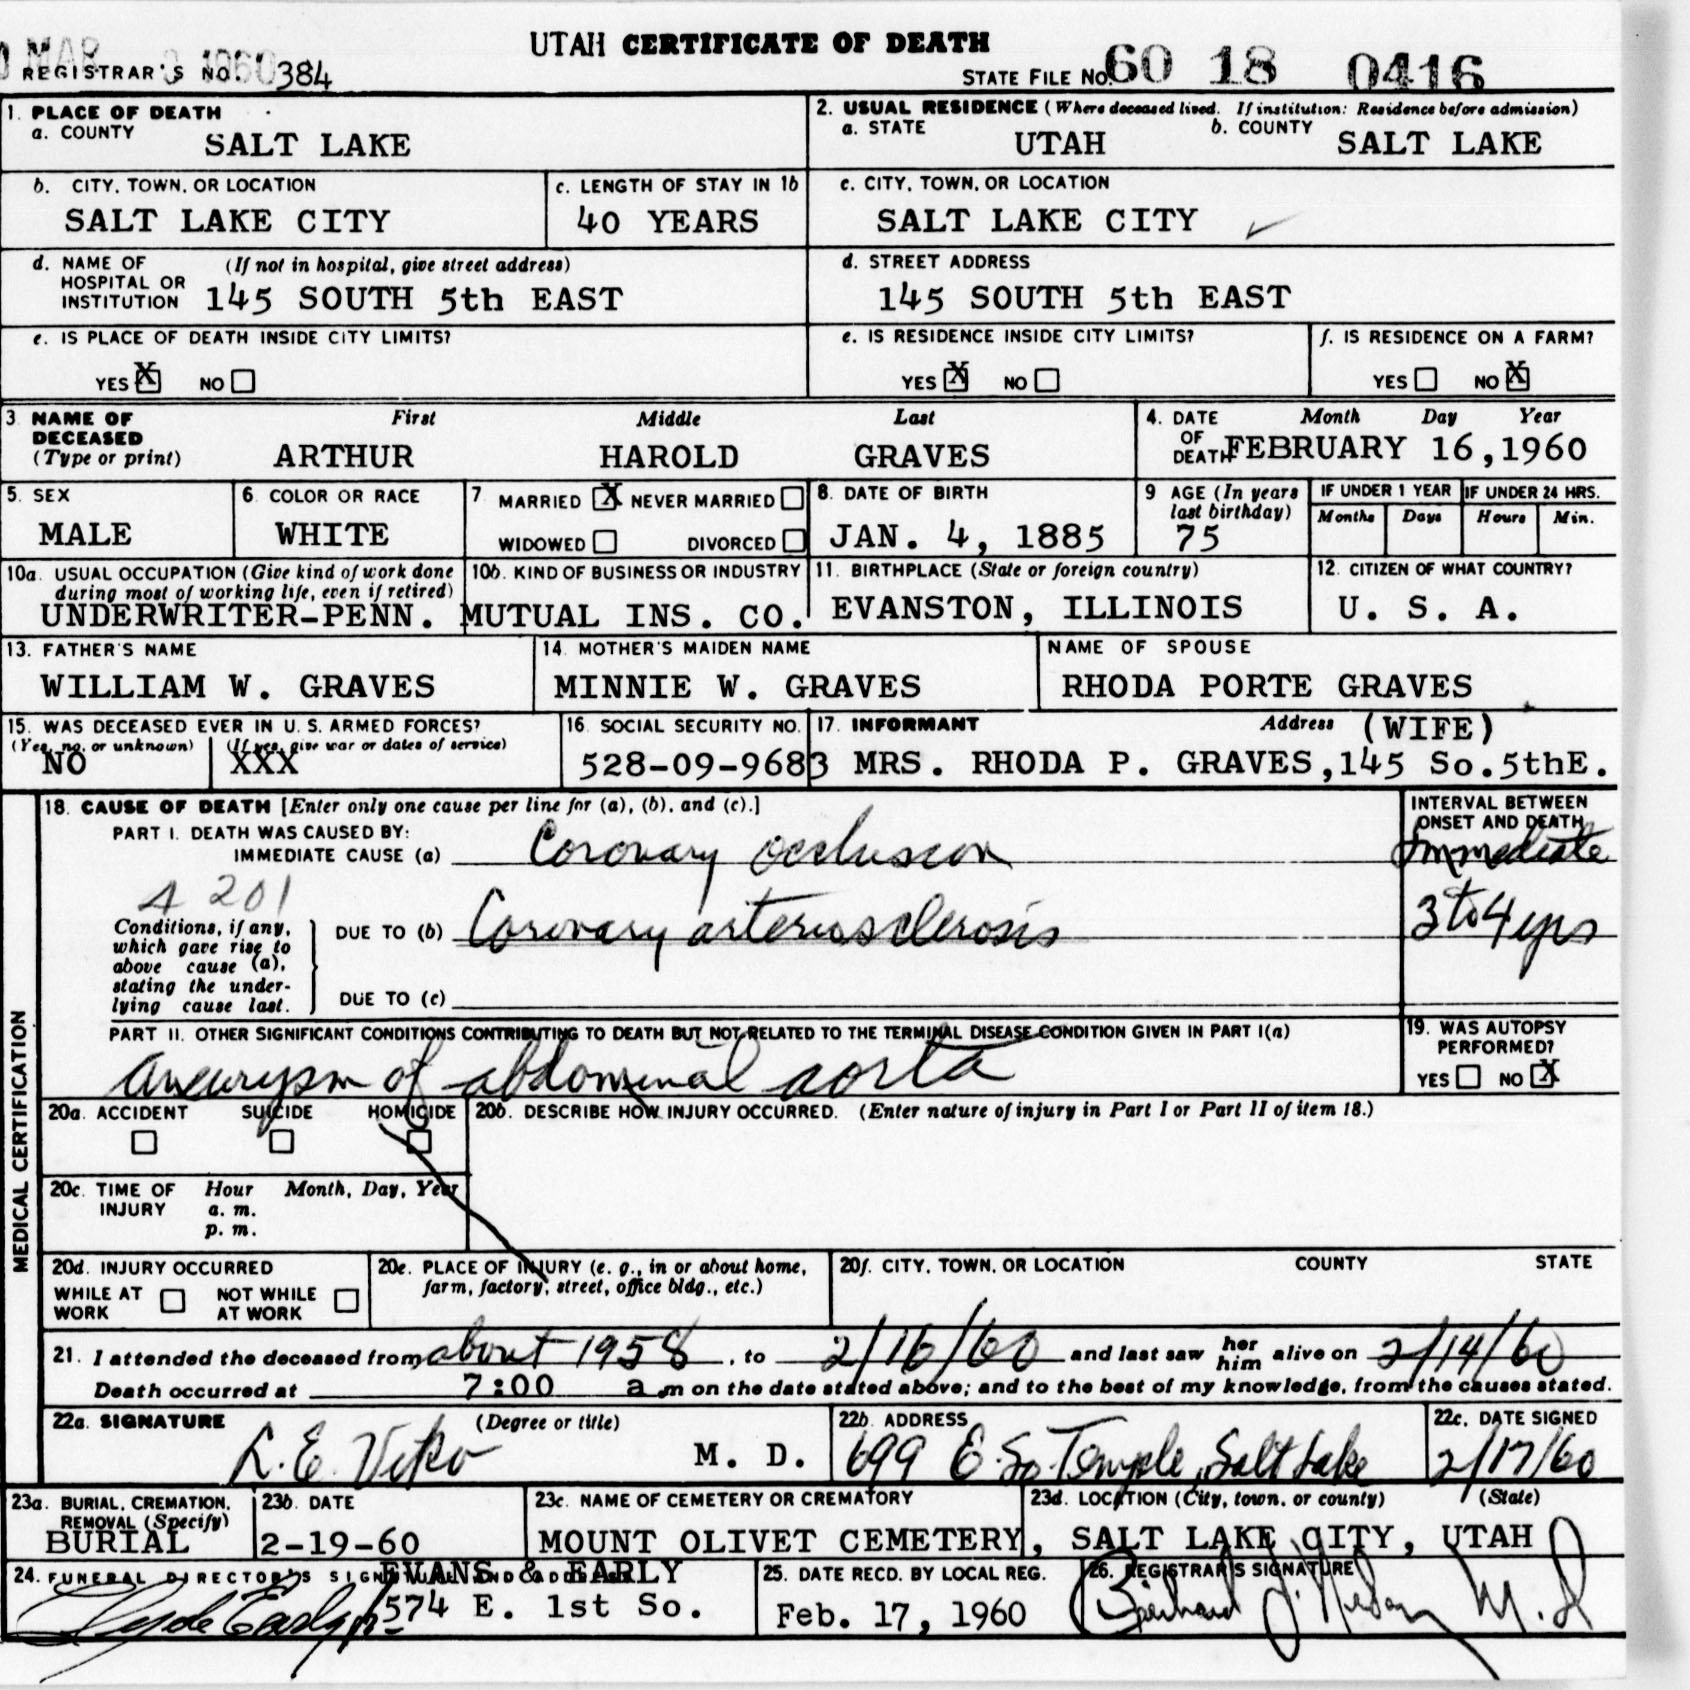 UTAH CERTIFICATE OF DEATH
MAR 1960
REGISTRAR'S NO. 384
STATE FILE NO. 60 18 0416
1. PLACE OF DEATH
a. COUNTY
SALT LAKE
2. USUAL RESIDENCE (Where deceased lived. If institution: Residence before admission)
a. STATE UTAH b. COUNTY SALT LAKE
b. CITY, TOWN, OR LOCATION
SALT LAKE CITY
c. LENGTH OF STAY IN 1b
40 YEARS
c. CITY, TOWN, OR LOCATION
SALT LAKE CITY
d. NAME OF HOSPITAL OR INSTITUTION (If not in hospital, give street address)
145 SOUTH 5th EAST
d. STREET ADDRESS
145 SOUTH 5th EAST
e. IS PLACE OF DEATH INSIDE CITY LIMITS?
YES X NO
e. IS RESIDENCE INSIDE CITY LIMITS?
YES X NO
f. IS RESIDENCE ON A FARM?
YES NO X
3. NAME OF DECEASED (Type or print)
First Middle Last
ARTHUR HAROLD GRAVES
4. DATE OF DEATH Month Day Year
FEBRUARY 16, 1960
5. SEX
MALE
6. COLOR OR RACE
WHITE
7. MARRIED X NEVER MARRIED
WIDOWED DIVORCED
8. DATE OF BIRTH
JAN. 4, 1885
9 AGE (In years last birthday)
75
IF UNDER 1 YEAR
Months Days
IF UNDER 24 HRS.
Hours Min.
10a. USUAL OCCUPATION (Give kind of work done during most of working life, even if retired)
10b. KIND OF BUSINESS OR INDUSTRY
UNDERWRITER-PENN. MUTUAL INS. CO.
11. BIRTHPLACE (State or foreign country)
EVANSTON, ILLINOIS
12. CITIZEN OF WHAT COUNTRY?
U. S. A.
13. FATHER'S NAME
WILLIAM W. GRAVES
14. MOTHER'S MAIDEN NAME
MINNIE W. GRAVES
NAME OF SPOUSE
RHODA PORTE GRAVES
15. WAS DECEASED EVER IN U. S. ARMED FORCES?
(Yes, no, or unknown) (If yes, give war or dates of service)
NO XXX
16. SOCIAL SECURITY NO.
528-09-9683
17. INFORMANT Address (WIFE)
MRS. RHODA P. GRAVES, 145 So. 5thE.
MEDICAL CERTIFICATION
18. CAUSE OF DEATH [Enter only one cause per line for (a), (b), and (c).]
INTERVAL BETWEEN ONSET AND DEATH
PART I. DEATH WAS CAUSED BY:
IMMEDIATE CAUSE (a) Coronary occlusion Immediate
4 201
Conditions, if any, which gave rise to above cause (a), stating the underlying cause last.
DUE TO (b) Coronary arteriosclerosis 3 to 4 yrs
DUE TO (c)
PART II. OTHER SIGNIFICANT CONDITIONS CONTRIBUTING TO DEATH BUT NOT RELATED TO THE TERMINAL DISEASE CONDITION GIVEN IN PART I(a)
aneurysm of abdominal aorta
19. WAS AUTOPSY PERFORMED?
YES NO X
20a. ACCIDENT SUICIDE HOMICIDE
20b. DESCRIBE HOW INJURY OCCURRED. (Enter nature of injury in Part I or Part II of item 18.)
20c. TIME OF INJURY Hour Month, Day, Year
a. m.
p. m.
20d. INJURY OCCURRED
WHILE AT WORK NOT WHILE AT WORK
20e. PLACE OF INJURY (e. g., in or about home, farm, factory, street, office bldg., etc.)
20f. CITY, TOWN, OR LOCATION COUNTY STATE
21. I attended the deceased from about 1958, to 2/16/60 and last saw her him alive on 2/14/60
Death occurred at 7:00 a m on the date stated above; and to the best of my knowledge, from the causes stated.
22a. SIGNATURE (Degree or title)
L. E. Viko M. D.
22b. ADDRESS
699 E. So. Temple, Salt Lake
22c. DATE SIGNED
2/17/60
23a. BURIAL, CREMATION, REMOVAL (Specify)
BURIAL
23b. DATE
2-19-60
23c. NAME OF CEMETERY OR CREMATORY
MOUNT OLIVET CEMETERY,
23d. LOCATION (City, town, or county) (State)
SALT LAKE CITY, UTAH
24. FUNERAL DIRECTOR'S SIGNATURE AND ADDRESS
EVANS & EARLY
Clyde Early 574 E. 1st So.
25. DATE RECD. BY LOCAL REG.
Feb. 17, 1960
26. REGISTRAR'S SIGNATURE
M. D